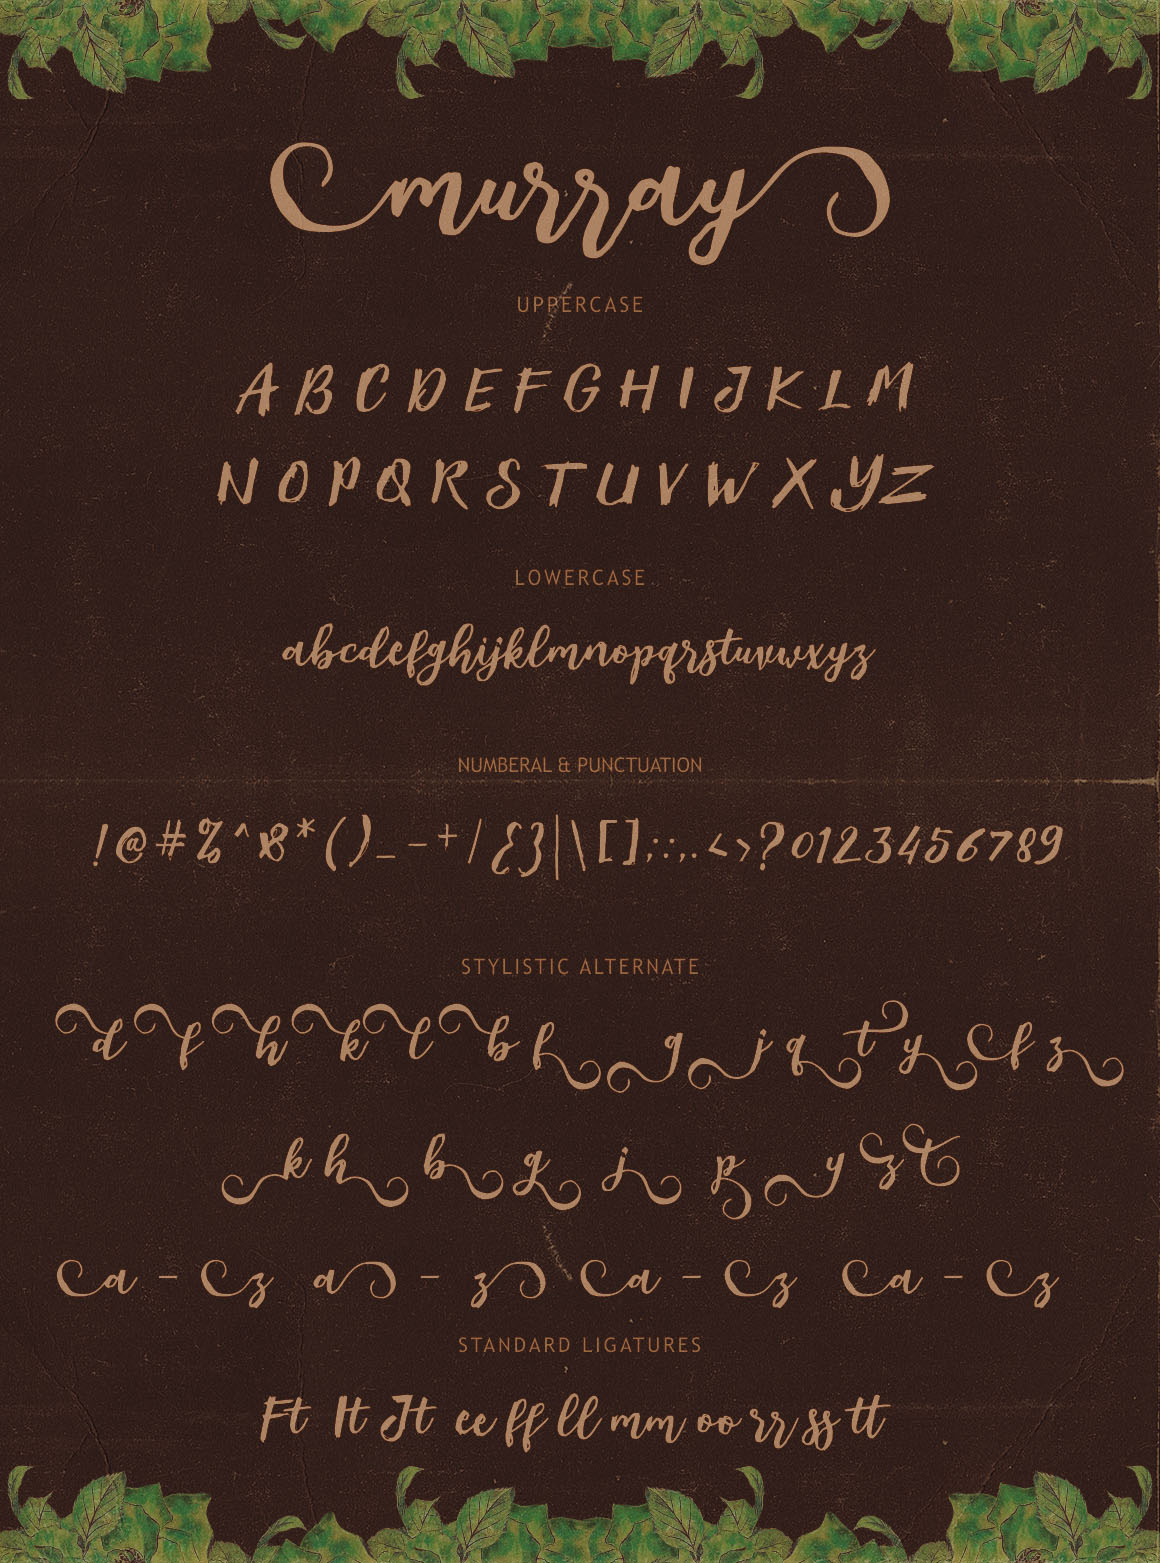 murray
UPPERCASE
A B C D E F G H I J K L M
N O P Q R S T U V W X Y Z
LOWERCASE
abcdefghijklmnopqrstuvwxyz
NUMBERAL & PUNCTUATION
!@#%^&*()_-+/{}|\[];:,.<>?0123456789
STYLISTIC ALTERNATE
d f h k l b h g j q t y f z
k h b g j p y z t
a - z a - z a - z a - z
STANDARD LIGATURES
Ft It Jt ee ff ll mm oo rr ss tt